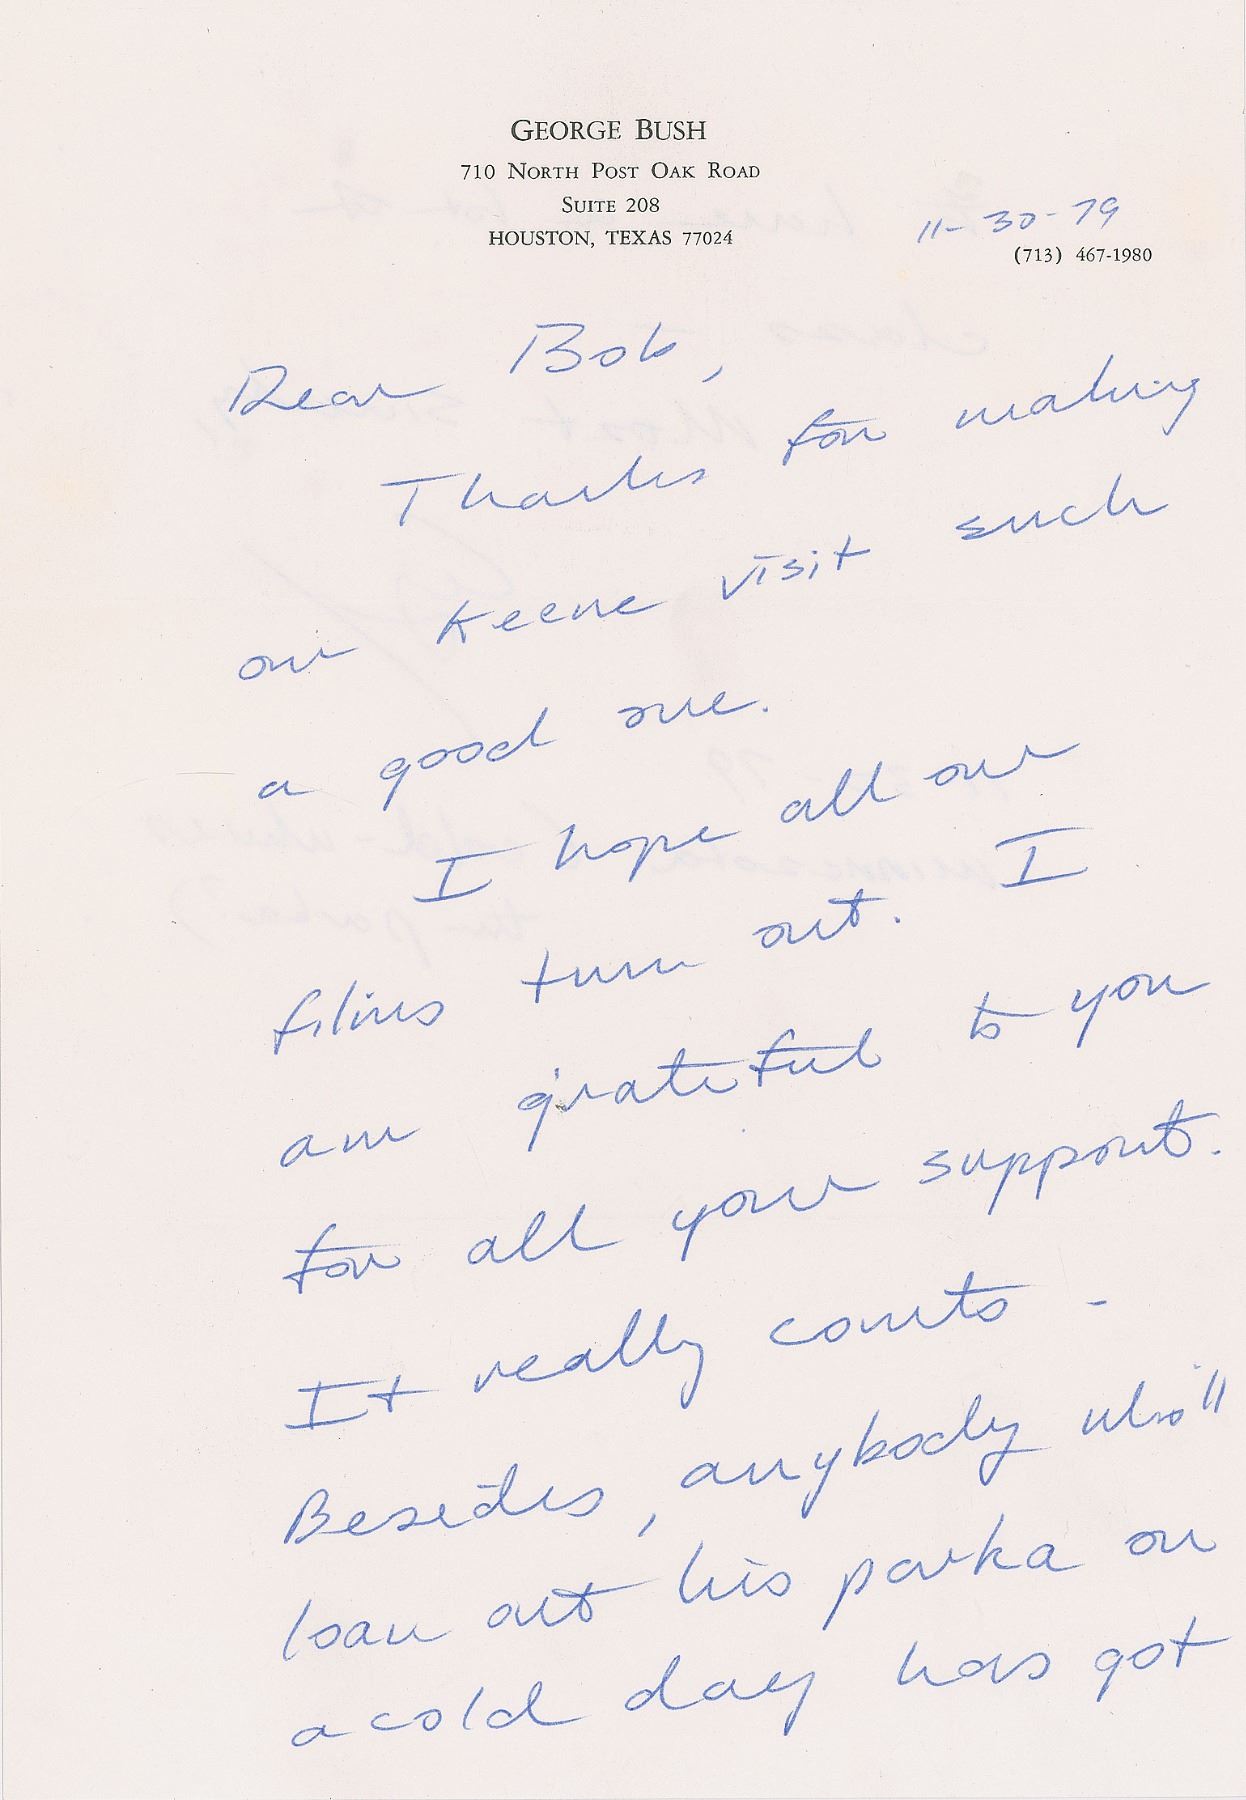 GEORGE BUSH
710 NORTH POST OAK ROAD
SUITE 208
HOUSTON, TEXAS 77024
11-30-79
(713) 467-1980
Dear Bob,
Thanks for making
our Keene visit such
a good one.
I hope all our
films turn out. I
am grateful to you
for all your support.
It really counts -
Besides, anybody who'll
loan out his parka on
a cold day has got